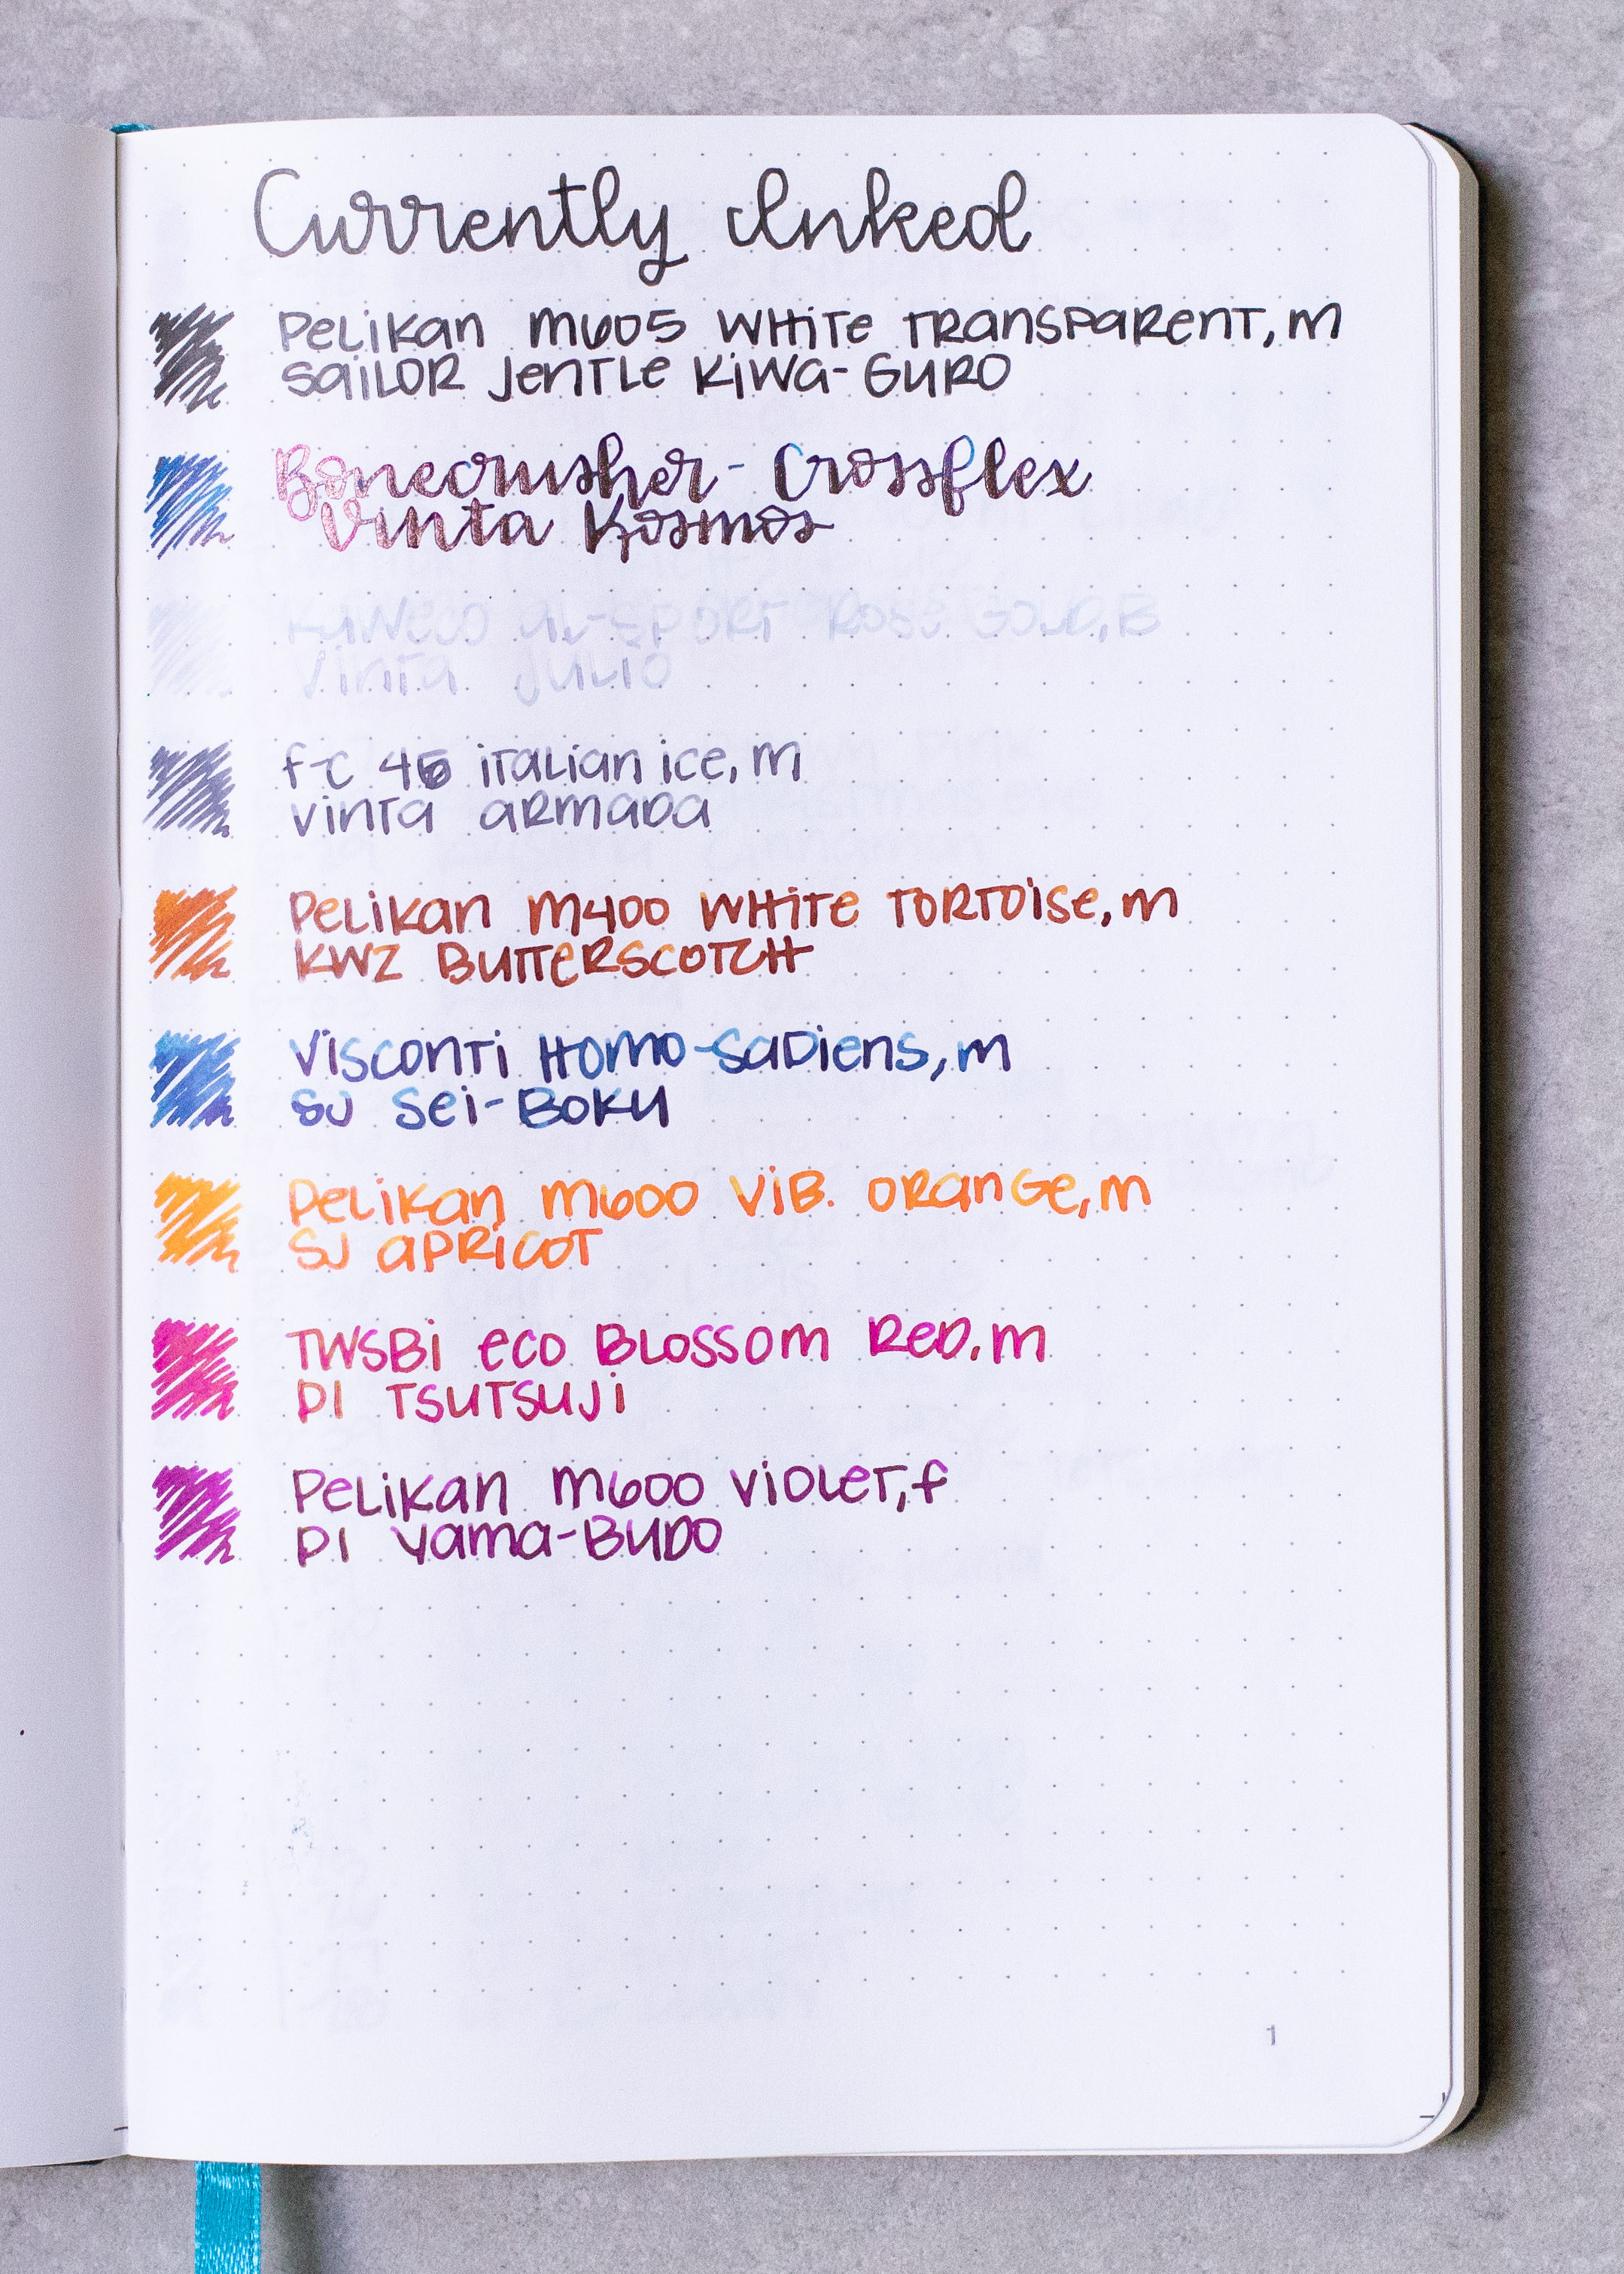 Currently Inked
Pelikan M605 White Transparent, M
Sailor Jentle Kiwa-Guro
Bonecrusher - Crossflex
Vinta Kosmos
Kaweco Al-Sport Rose Gold, B
Vinta Julio
F-C 45 Italian Ice, M
Vinta Armada
Pelikan M400 White Tortoise, M
KWZ Butterscotch
Visconti Homo-Sapiens, M
SJ Sei-Boku
Pelikan M600 Vib. Orange, M
SJ Apricot
TWSBI Eco Blossom Red, M
DI Tsutsuji
Pelikan M600 Violet, F
DI Yama-Budo
1